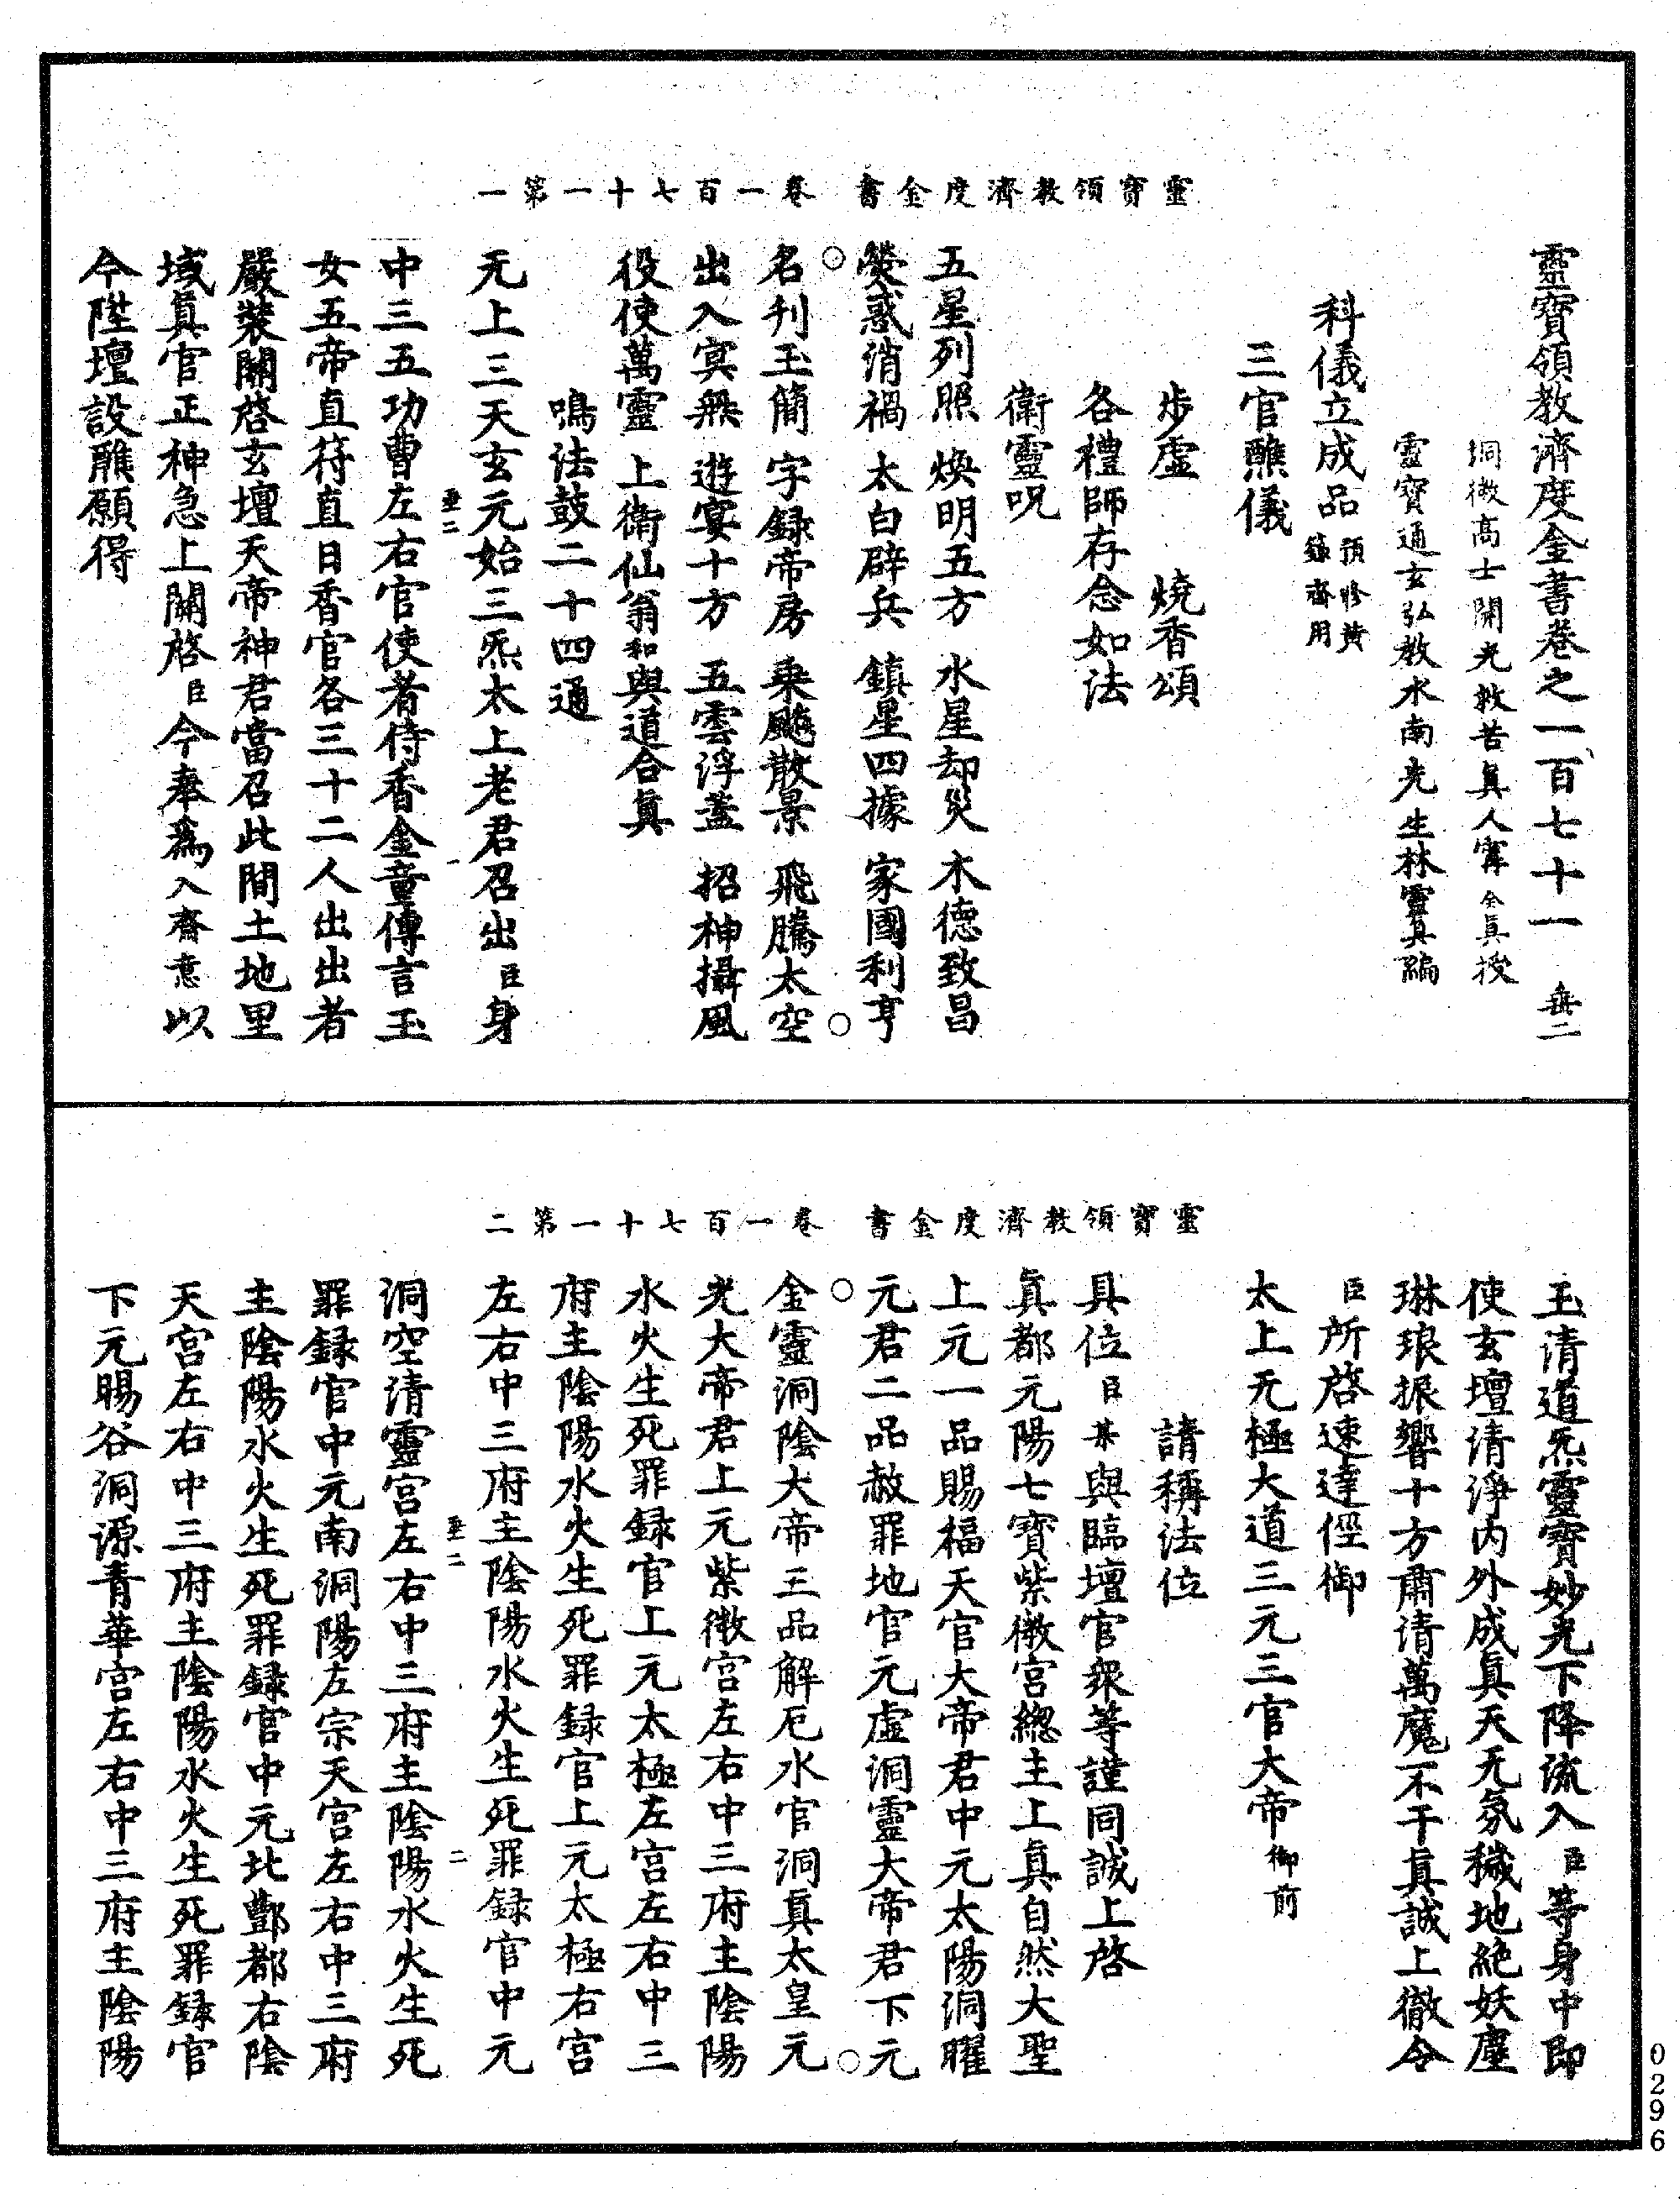 靈寶領教濟度金書　卷一百七十一第一
靈寶領教濟度金書卷之一百七十一　垂二
洞微高士開光救苦真人寗全真授
靈寶通玄弘教水南先生林靈真編
科儀立成品預修黃籙齋用
三官醮儀
步虛　燒香頌
各禮師存念如法
衛靈呪
五星列照　煥明五方　水星却災　木德致昌
熒惑消禍　太白辟兵　鎮星四據　家國利亨
名刊玉簡　字録帝房　乗飈散景　飛騰太空
出入㝠無　遊宴十方　五雲浮蓋　招神攝風
役使萬靈　上衛仙翁和與道合真
鳴法鼓二十四通
无上三天玄元始三炁太上老君召出臣身
垂二　一
中三五功曹左右官使者侍香金童傳言玉
女五帝直符直日香官各三十二人出出者
嚴裝關啓玄壇天帝神君當召此間土地里
域真官正神急上關啓臣今奉為入齋意以
今陞壇設醮願得
靈寶領教濟度金書　卷一百七十一第二
玉清道炁靈寶妙光下降流入臣等身中即
使玄壇清淨内外成真天无氛穢地絶妖塵
琳琅振響十方肅清萬魔不干真誠上徹令
臣所啓速達徑御
太上无極大道三元三官大帝御前
請稱法位
具位臣某與臨壇官衆等謹同誠上啓
真都元陽七寶紫微宮總主上真自然大聖
上元一品賜福天官大帝君中元太陽洞曜
元君二品赦罪地官元虛洞靈大帝君下元
金靈洞陰大帝三品解厄水官洞真太皇元
光大帝君上元紫微宮左右中三府主陰陽
水火生死罪録官上元太極左宮左右中三
府主陰陽水火生死罪録官上元太極右宮
左右中三府主陰陽水火生死罪録官中元
垂二　二
洞空清靈宮左右中三府主陰陽水火生死
罪録官中元南洞陽左宗天宮左右中三府
主陰陽水火生死罪録官中元北酆都右陰
天宮左右中三府主陰陽水火生死罪録官
下元暘谷洞源青華宮左右中三府主陰陽
0296